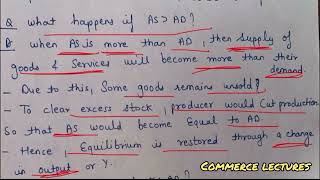 Q what happens if AS > AD?
A when AS is more than AD, then supply of
goods & Services will become more than their
demand.
- Due to this, Some goods remain unsold?
- To clear excess stock, producer would Cut production
So that AS would become Equal to AD.
- Hence, Equilibrium is restored through a change
in output or Y.
Commerce lectures